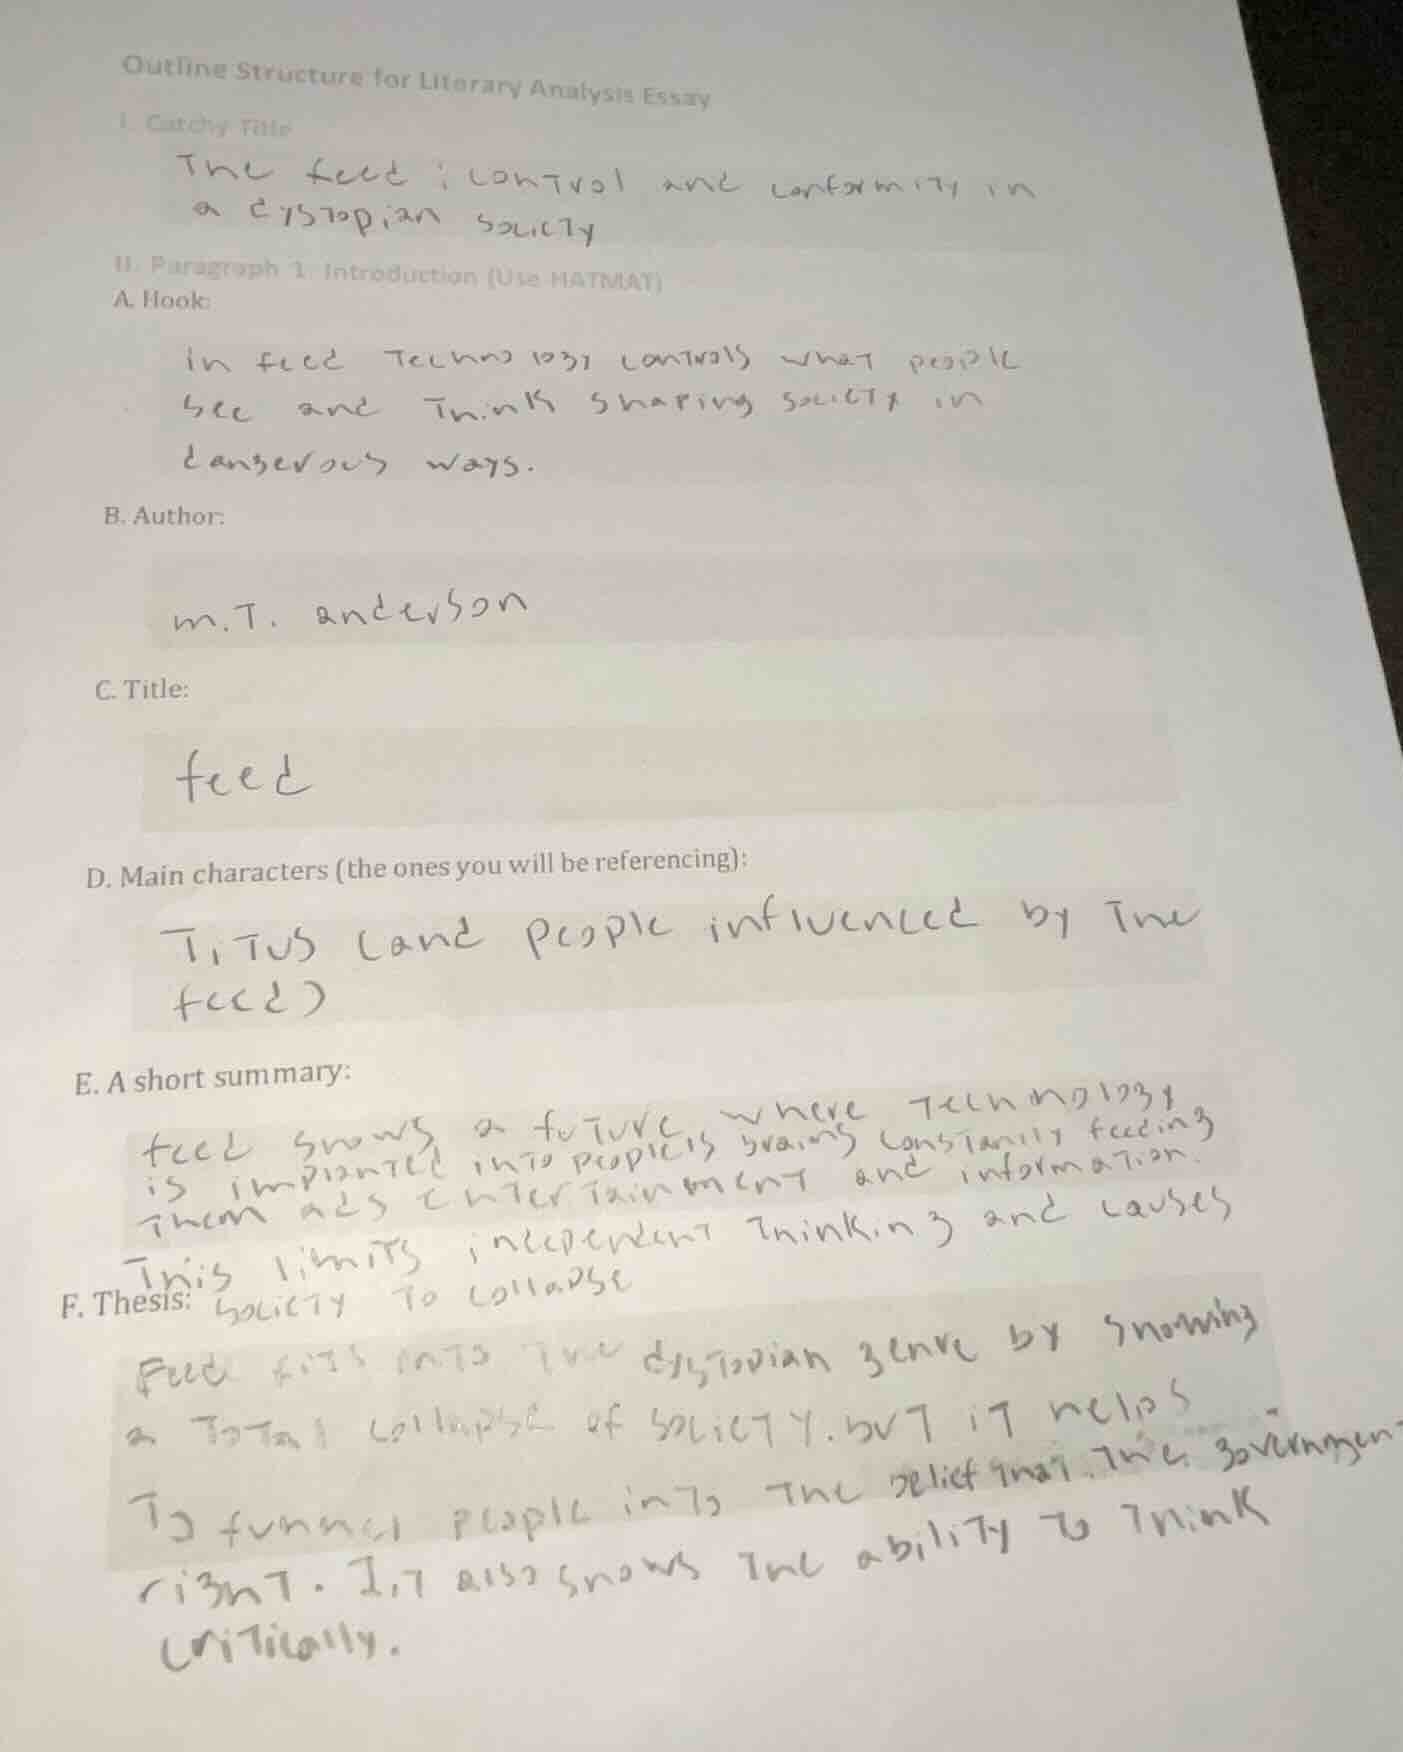 Outline Structure for Literary Analysis Essay
I. Catchy Title
The feed : control and conformity in
a dystopian society
II. Paragraph 1: Introduction (Use HATMAT)
A. Hook:
in feed Technology controls what people
see and Think shaping society in
dangerous ways.
B. Author:
m.T. anderson
C. Title:
feed
D. Main characters (the ones you will be referencing):
TiTus (and people influenced by The
feed)
E. A short summary:
feed shows a future where Technology
is implanted into people's brains constantly feeding
Them ads entertainment and information.
This limits independent Thinking and causes
society To collapse
F. Thesis:
Feed fits into The dystopian genre by showing
a Total collapse of society. but it helps
To funnel people into The belief that The government
right. It also shows The ability To Think
critically.